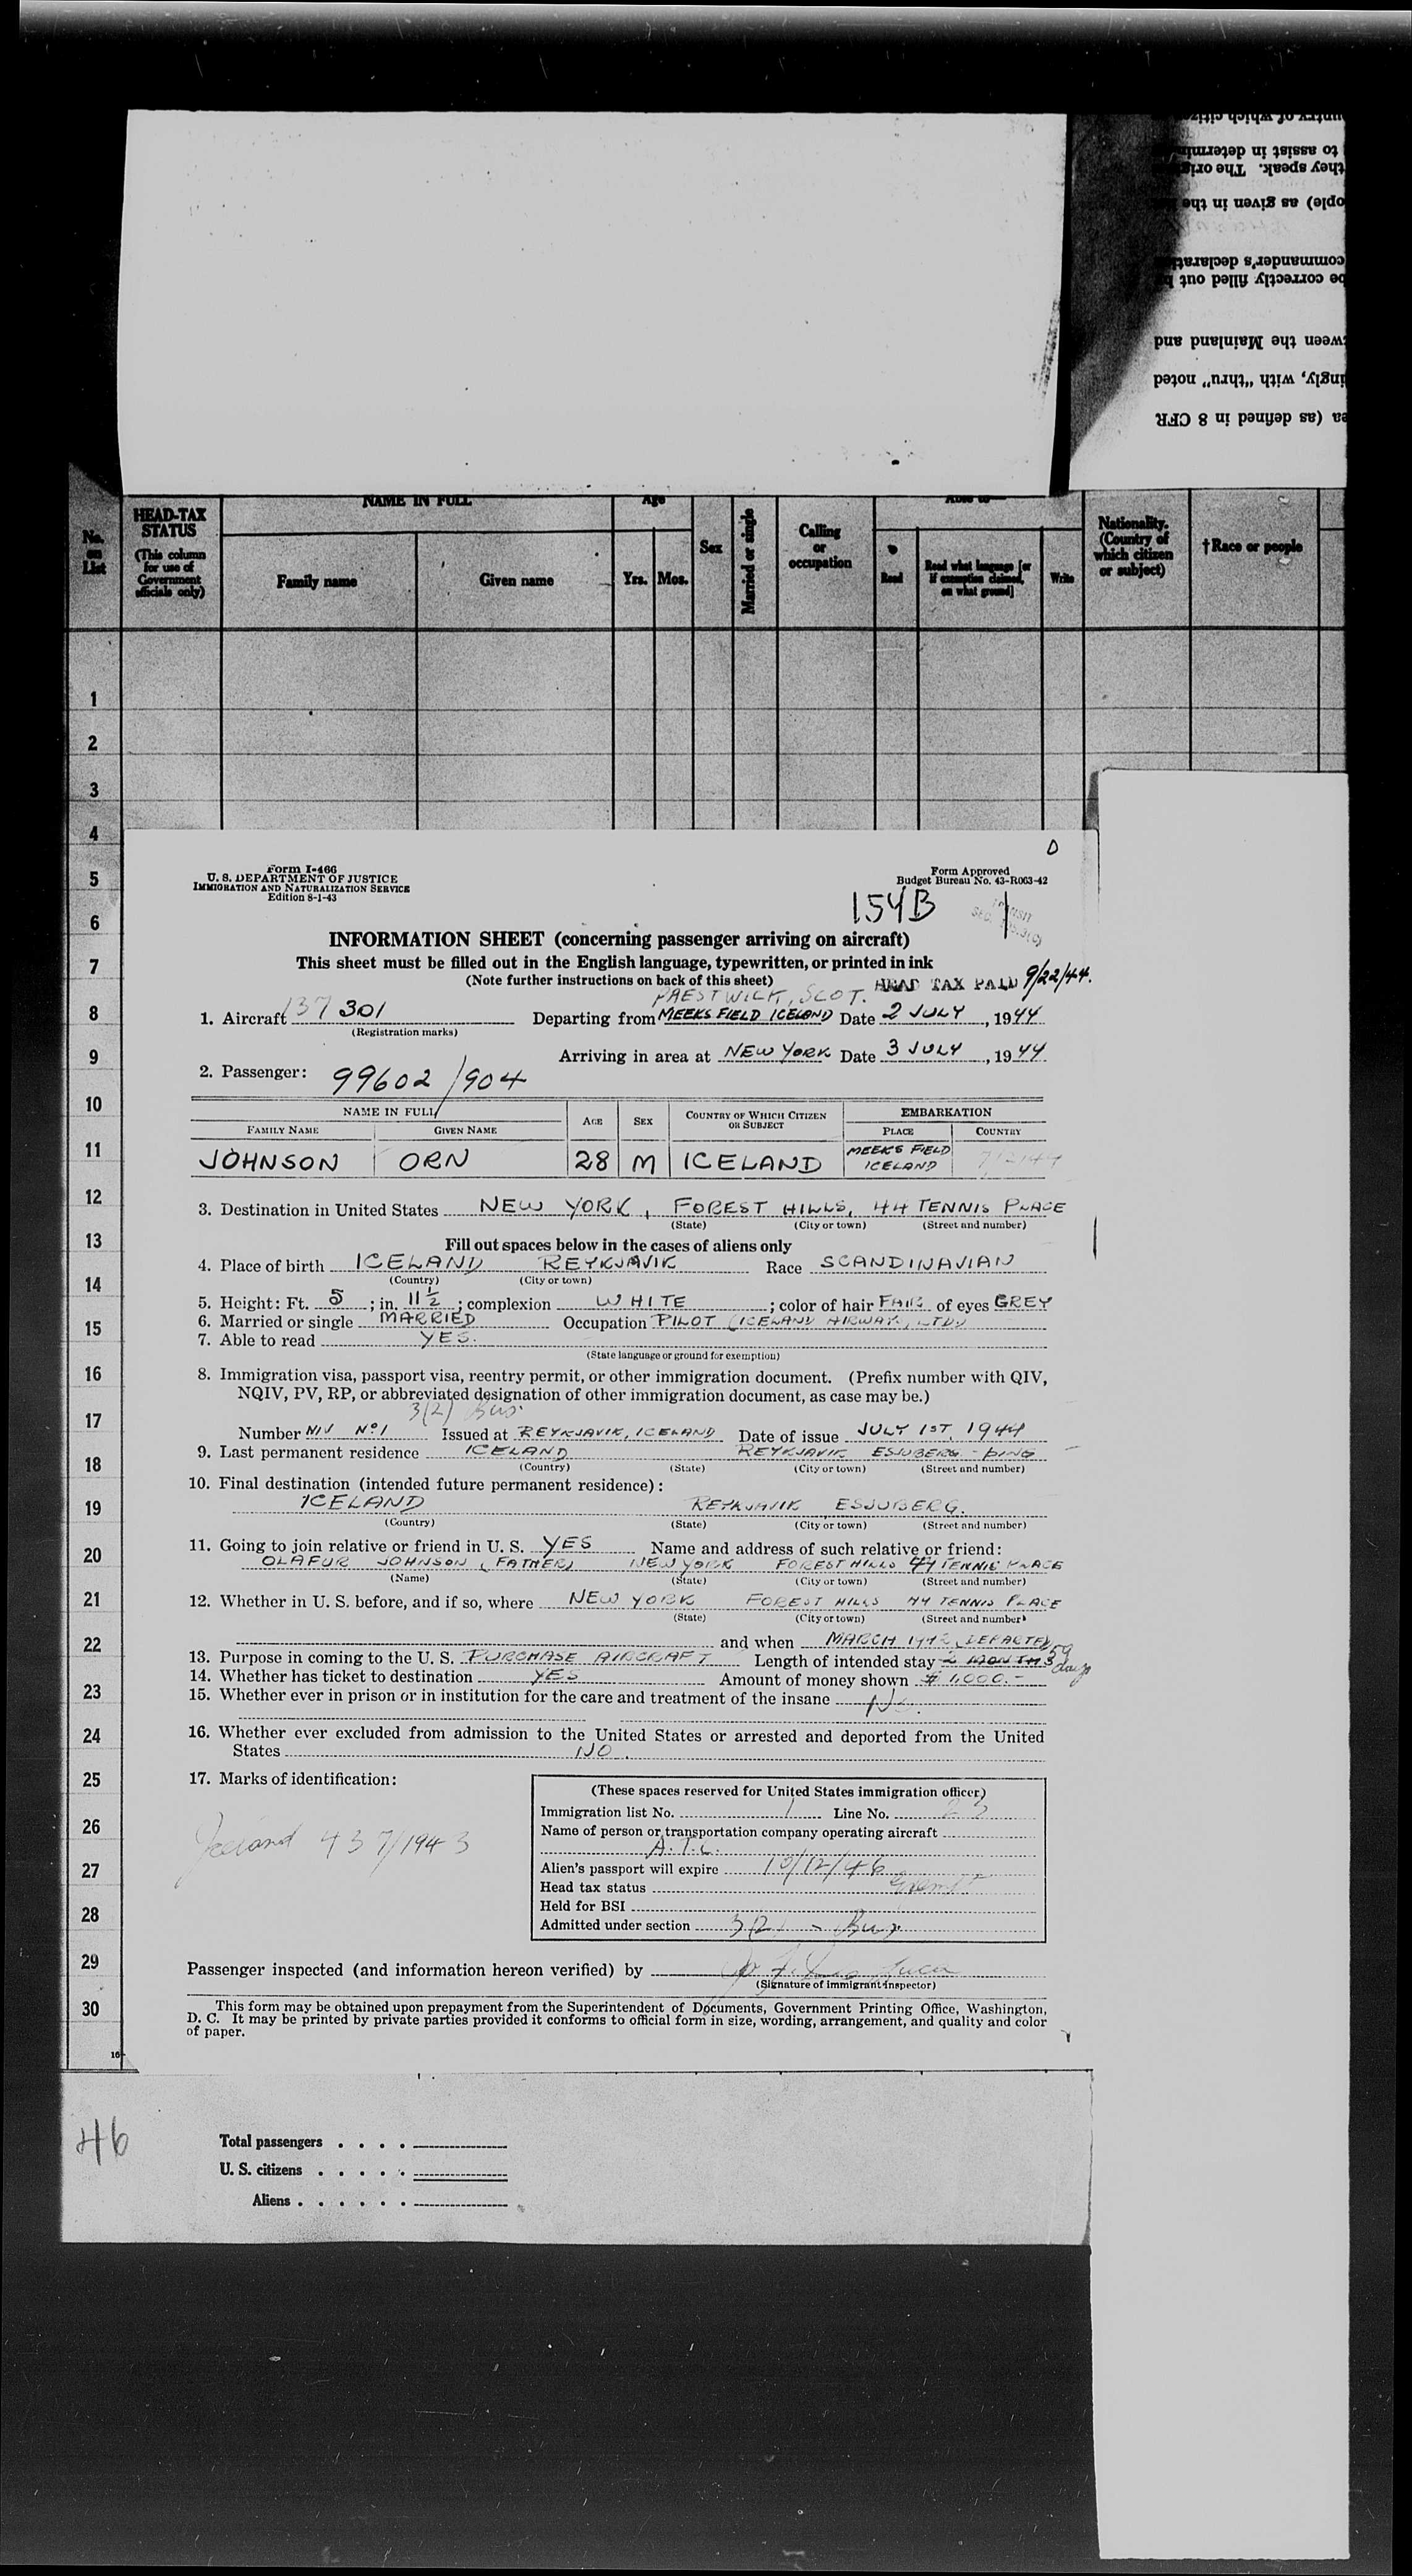 NAME IN FULL
Age
Able to—
No. on List
HEAD-TAX STATUS
(This column for use of Government officials only)
Family name
Given name
Yrs.
Mos.
Sex
Married or single
Calling or occupation
Read
Read what language [or if exemption claimed, on what ground]
Write
Nationality. (Country of which citizen or subject)
† Race or people
to assist in
they speak. The
ople) as given in the
commander's
be correctly filled out
ween the Mainland and
ingly, with "thru" noted
ea (as defined in 8 CFR
1
2
3
4
5
6
7
8
9
10
11
12
13
14
15
16
17
18
19
20
21
22
23
24
25
26
27
28
29
30
16—
Form I-466
U. S. DEPARTMENT OF JUSTICE
IMMIGRATION AND NATURALIZATION SERVICE
Edition 8-1-43
Form Approved
Budget Bureau No. 43-R063-42
154B
INFORMATION SHEET (concerning passenger arriving on aircraft)
This sheet must be filled out in the English language, typewritten, or printed in ink
(Note further instructions on back of this sheet)
HEAD TAX PAID 9/22/44.
PRESTWICK, SCOT.
1. Aircraft 137301 Departing from MEEKS FIELD ICELAND Date 2 JULY, 1944
(Registration marks)
Arriving in area at NEW YORK Date 3 JULY, 1944
2. Passenger: 99602/904
NAME IN FULL
FAMILY NAME GIVEN NAME AGE SEX COUNTRY OF WHICH CITIZEN OR SUBJECT EMBARKATION
PLACE COUNTRY
JOHNSON ORN 28 M ICELAND MEEKS FIELD ICELAND 7/2/44
3. Destination in United States NEW YORK, FOREST HILLS, 44 TENNIS PLACE
(State) (City or town) (Street and number)
Fill out spaces below in the cases of aliens only
4. Place of birth ICELAND REYKJAVIK Race SCANDINAVIAN
(Country) (City or town)
5. Height: Ft. 5; in. 11½; complexion WHITE; color of hair FAIR of eyes GREY
6. Married or single MARRIED Occupation PILOT (ICELAND AIRWAYS, LTD)
7. Able to read YES.
(State language or ground for exemption)
8. Immigration visa, passport visa, reentry permit, or other immigration document. (Prefix number with QIV,
NQIV, PV, RP, or abbreviated designation of other immigration document, as case may be.)
3(2) Bus.
Number NIV No 1 Issued at REYKJAVIK, ICELAND Date of issue JULY 1ST, 1944
9. Last permanent residence ICELAND REYKJAVIK ESJUBERG
(Country) (State) (City or town) (Street and number)
10. Final destination (intended future permanent residence):
ICELAND REYKJAVIK ESJUBERG.
(Country) (State) (City or town) (Street and number)
11. Going to join relative or friend in U. S. YES Name and address of such relative or friend:
OLAFUR JOHNSON (FATHER) NEW YORK FOREST HILLS 44 TENNIS PLACE
(Name) (State) (City or town) (Street and number)
12. Whether in U. S. before, and if so, where NEW YORK FOREST HILLS 44 TENNIS PLACE
(State) (City or town) (Street and number)
and when MARCH 1942 DEPARTED
13. Purpose in coming to the U. S. PURCHASE AIRCRAFT Length of intended stay 2 MONTHS 59 days
14. Whether has ticket to destination YES Amount of money shown $ 1,000.-
15. Whether ever in prison or in institution for the care and treatment of the insane NO.
16. Whether ever excluded from admission to the United States or arrested and deported from the United
States NO.
17. Marks of identification:
Iceland 437/1943
(These spaces reserved for United States immigration officer)
Immigration list No. 1 Line No. 23
Name of person or transportation company operating aircraft
A.T.C.
Alien's passport will expire 10/12/46
Head tax status Exempt
Held for BSI
Admitted under section 3(2) - Bus.
Passenger inspected (and information hereon verified) by
(Signature of immigrant inspector)
This form may be obtained upon prepayment from the Superintendent of Documents, Government Printing Office, Washington,
D. C. It may be printed by private parties provided it conforms to official form in size, wording, arrangement, and quality and color
of paper.
46
Total passengers
U. S. citizens
Aliens